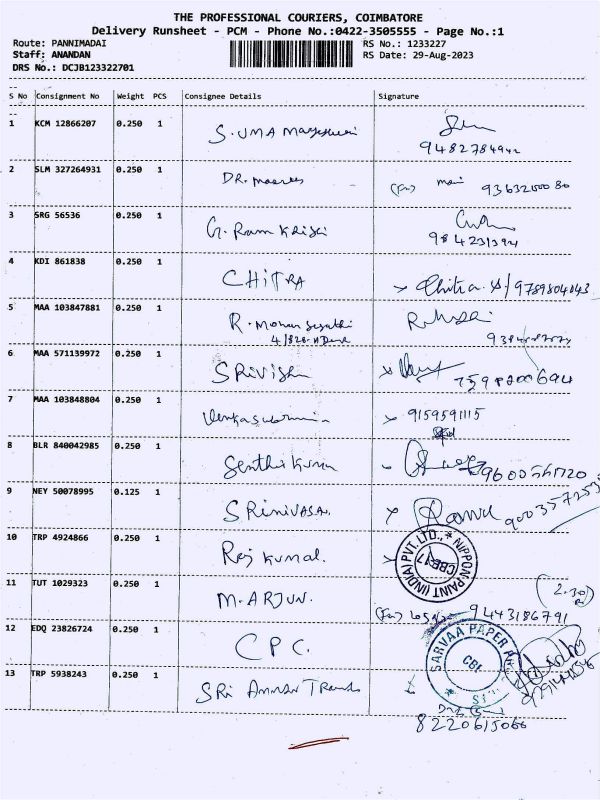 THE PROFESSIONAL COURIERS, COIMBATORE
Delivery Runsheet - PCM - Phone No.:0422-3505555 - Page No.:1
Route: PANNIMADAI RS No.: 1233227
Staff: ANANDAN RS Date: 29-Aug-2023
DRS No.: DCJB123322701
S No Consignment No Weight PCS Consignee Details Signature
1 KCM 12866207 0.250 1 S. UMA Mageshwari
9482784942
2 SLM 327264931 0.250 1 DR.
3 SRG 56536 0.250 1 G. Ram
4 KDI 861838 0.250 1 CHITRA Chitra. S/9789804043
5 MAA 103847881 0.250 1 R. Mohan
6 MAA 571139972 0.250 1 SRIVISH
7598200694
7 MAA 103848804 0.250 1 9159591115
8 BLR 840042985 0.250 1 Senthil Kumar
9 NEY 50078995 0.125 1 SRINIVASAN
10 TRP 4924866 0.250 1 Raj Kumar.
NIPPON PAINT (INDIA) PVT. LTD., * CBE-17
11 TUT 1029323 0.250 1 M. ARJUN. 2.30
9443186791
12 EDQ 23826724 0.250 1 CPC.
SARVAA PAPER CBE
13 TRP 5938243 0.250 1 SRI Amman Trands
8220615066